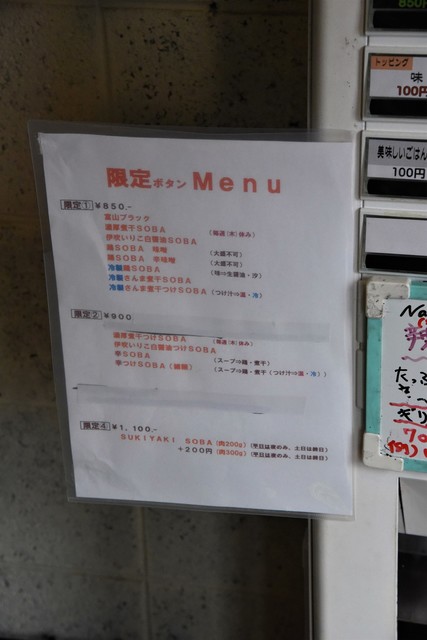 850円
トッピング
味
100円
美味しいごはん
100円
限定ボタンMenu
限定① ¥850.-
富山ブラック
濃厚煮干SOBA (毎週(水)休み)
伊吹いりこ白醤油SOBA
鶏SOBA 味噌 (大盛不可)
鶏SOBA 辛味噌 (大盛不可)
冷製鶏SOBA (味⇒生醤油・汐)
冷製さんま煮干SOBA
冷製さんま煮干つけSOBA (つけ汁⇒温・冷)
限定② ¥900
濃厚煮干つけSOBA (毎週(水)休み)
伊吹いりこ白醤油つけSOBA
辛SOBA (スープ⇒鶏・煮干)
辛つけSOBA (スープ⇒鶏・煮干(つけ汁⇒温・冷))
限定④ ¥1,100.-
SUKIYAKI SOBA (肉200g) (平日は夜のみ、土日は終日)
+200円 (肉300g) (平日は夜のみ、土日は終日)
Na
たっぷ
ぎり